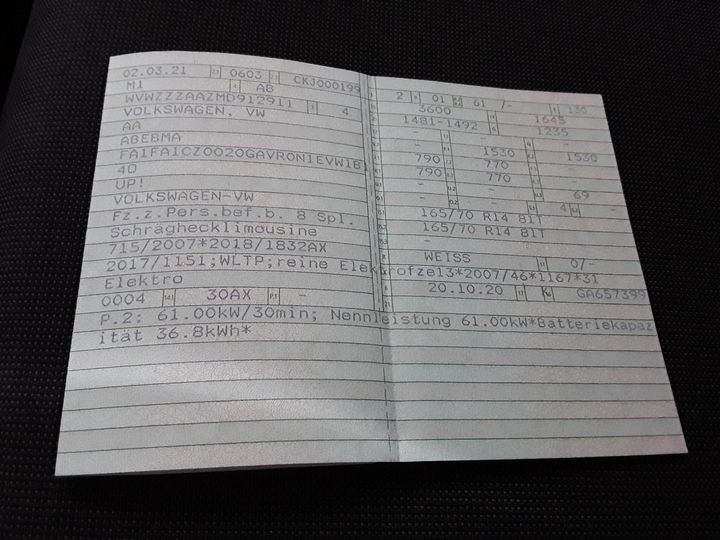 02.03.21 0603 CKJ000199
M1 A8
WVWZZZAAZMD912911 4
VOLKSWAGEN, VW
AA
ABE8MA
FA1FA1CZ0020GAVR0N1EVW1B1
4D
UP!
VOLKSWAGEN-VW
Fz.z.Pers.bef.b. 8 Spl.
Schräghecklimousine
715/2007*2018/1832AX
2017/1151;WLTP;reine Elek
Elektro
0004 30AX -
2 01 61 /- 130
3600 1645
1481-1492 1235
- - -
- 1530 1530
790 770 -
790 770 -
- - 69
- - 4 -
165/70 R14 81T
165/70 R14 81T
-
WEISS 0/-
trofze13*2007/46*1167*31
20.10.20 GA657399
P.2: 61.00kW/30min; Nennleistung 61.00kW*Batteriekapaz
ität 36.8kWh*